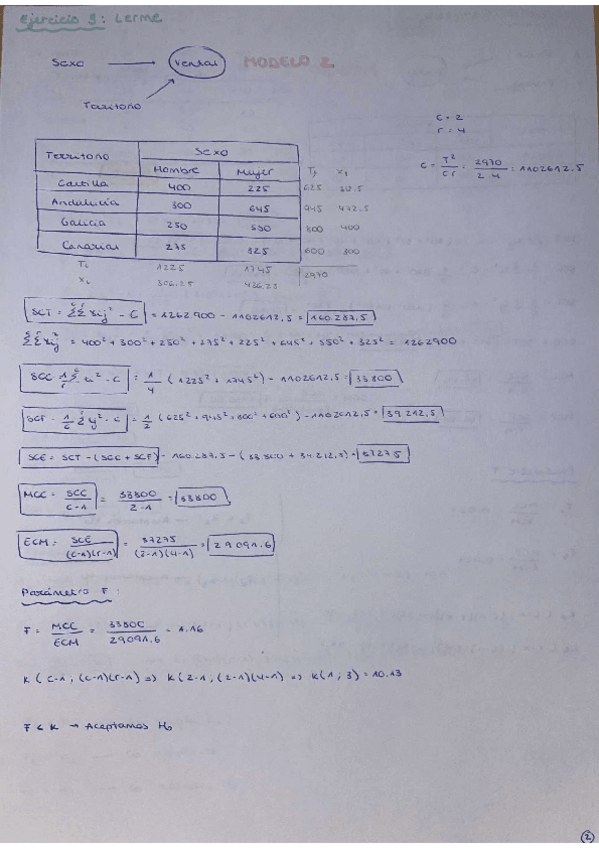 Ejercicio 3: Lerme
Sexo → Ventas MODELO 2.
Territorio
c = 2
r = 4
C = T²/cr = 2970/2·4 = 1102612,5
Territorio Sexo
Hombre Mujer Tj
Castilla 400 225 625
Andalucía 300 645 945 472.5
Galicia 250 550 800 400
Canarias 275 325 600 300
1225 1745 2970
306.25 436.25
SCT = ΣΣxij² - C = 1262900 - 1102612,5 = 160.287,5
ΣΣxij² = 400² + 300² + 250² + 275² + 225² + 645² + 550² + 325² = 1262900
SCC = 1/r Σ x² - C = 1/4 (1225² + 1745²) - 1102612,5 = 33.800
SCF = 1/c Σ y² - C = 1/2 (625² + 945² + 800² + 600²) - 1102612,5 = 39.212,5
SCE = SCT - (SCC + SCF) = 160.287,5 - (33.800 + 39.212,5) = 87275
MCC = SCC/c-1 = 33800/2-1 = 33800
ECM = SCE/(c-1)(r-1) = 87275/(2-1)(4-1) = 29091.6
Parámetro F:
F = MCC/ECM = 33800/29091.6 = 1.16
K (c-1, (c-1)(r-1) => K (2-1, (2-1)(4-1) => K(1, 3) = 10.13
F < K → Aceptamos H₀
2